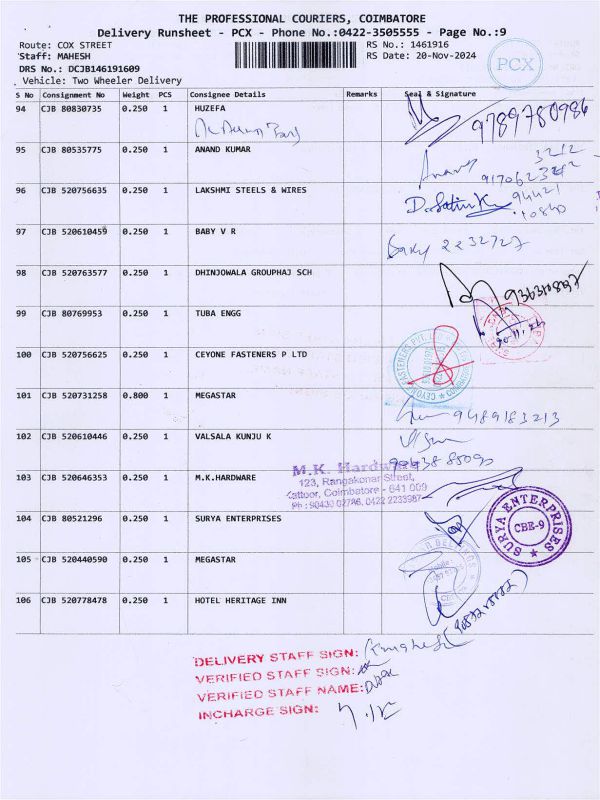 THE PROFESSIONAL COURIERS, COIMBATORE
Delivery Runsheet - PCX - Phone No.:0422-3505555 - Page No.:9
Route: COX STREET RS No.: 1461916
Staff: MAHESH RS Date: 20-Nov-2024
DRS No.: DCJB146191609
Vehicle: Two Wheeler Delivery
PCX
S No Consignment No Weight PCS Consignee Details Remarks Seal & Signature
94 CJB 80830735 0.250 1 HUZEFA 9789780986
95 CJB 80535775 0.250 1 ANAND KUMAR Anand
96 CJB 520756635 0.250 1 LAKSHMI STEELS & WIRES
97 CJB 520610459 0.250 1 BABY V R Baby 2232727
98 CJB 520763577 0.250 1 DHINJOWALA GROUPHAJ SCH
99 CJB 80769953 0.250 1 TUBA ENGG
100 CJB 520756625 0.250 1 CEYONE FASTENERS P LTD
101 CJB 520731258 0.800 1 MEGASTAR 9489183213
102 CJB 520610446 0.250 1 VALSALA KUNJU K
103 CJB 520646353 0.250 1 M.K.HARDWARE
M.K. Hardware
123, Rangakonar Street,
Kattoor, Coimbatore - 641 009
Ph : 90430 02786, 0422 2233987
104 CJB 80521296 0.250 1 SURYA ENTERPRISES
SURYA ENTERPRISES
CBE-9
105 CJB 520440590 0.250 1 MEGASTAR
106 CJB 520778478 0.250 1 HOTEL HERITAGE INN
DELIVERY STAFF SIGN:
VERIFIED STAFF SIGN:
VERIFIED STAFF NAME:
INCHARGE SIGN: